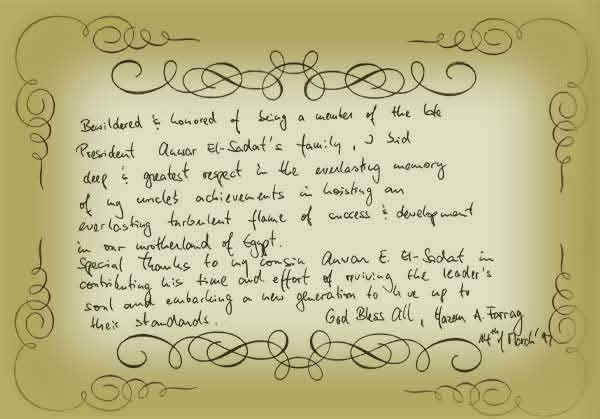 Bewildered & honored of being a member of the late
President Anwar El-Sadat's family, I bid
deep & greatest respect in the everlasting memory
of my uncle's achievements in hoisting an
everlasting turbulent flame of success & development
in our motherland of Egypt.
Special Thanks to my cousin Anwar E. El-Sadat in
contributing his time and effort of reviving the leader's
soul and embarking a new generation to live up to
their standards.
God Bless All, Hazem A. Farrag
14th of March '97